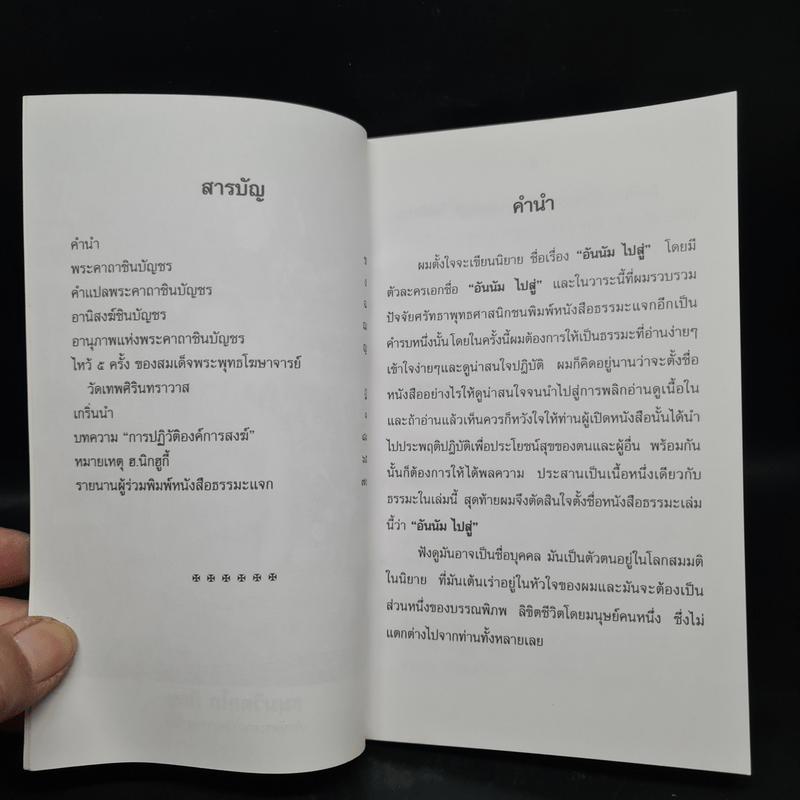 สารบัญ
คำนำ
พระคาถาชินบัญชร
คำแปลพระคาถาชินบัญชร
อานิสงฆ์ชินบัญชร
อานุภาพแห่งพระคาถาชินบัญชร
ไหว้ ๕ ครั้ง ของสมเด็จพระพุทธโฆษาจารย์
วัดเทพศิรินทราวาส
เกริ่นนำ
บทความ “การปฏิวัติองค์การสงฆ์”
หมายเหตุ ฮ.นิกฮูกี้
รายนานผู้ร่วมพิมพ์หนังสือธรรมะแจก
คำนำ
ผมตั้งใจจะเขียนนิยาย ชื่อเรื่อง “อันนัม ไปสู่” โดยมี
ตัวละครเอกชื่อ “อันนัม ไปสู่” และในวาระนี้ที่ผมรวบรวม
ปัจจัยศรัทธาพุทธศาสนิกชนพิมพ์หนังสือธรรมะแจกอีกเป็น
คำรบหนึ่งนั้นโดยในครั้งนี้ผมต้องการให้เป็นธรรมะที่อ่านง่ายๆ
เข้าใจง่ายๆและดูน่าสนใจปฏิบัติ ผมก็คิดอยู่นานว่าจะตั้งชื่อ
หนังสืออย่างไรให้ดูน่าสนใจจนนำไปสู่การพลิกอ่านดูเนื้อใน
และถ้าอ่านแล้วเห็นควรก็หวังใจให้ท่านผู้เปิดหนังสือนั้นได้นำ
ไปประพฤติปฏิบัติเพื่อประโยชน์สุขของตนและผู้อื่น พร้อมกัน
นั้นก็ต้องการให้ได้พลความ ประสานเป็นเนื้อหนึ่งเดียวกับ
ธรรมะในเล่มนี้ สุดท้ายผมจึงตัดสินใจตั้งชื่อหนังสือธรรมะเล่ม
นี้ว่า “อันนัม ไปสู่”
ฟังดูมันอาจเป็นชื่อบุคคล มันเป็นตัวตนอยู่ในโลกสมมติ
ในนิยาย ที่มันเต้นเร่าอยู่ในหัวใจของผมและมันจะต้องเป็น
ส่วนหนึ่งของบรรณพิภพ ลิขิตชีวิตโดยมนุษย์คนหนึ่ง ซึ่งไม่
แตกต่างไปจากท่านทั้งหลายเลย